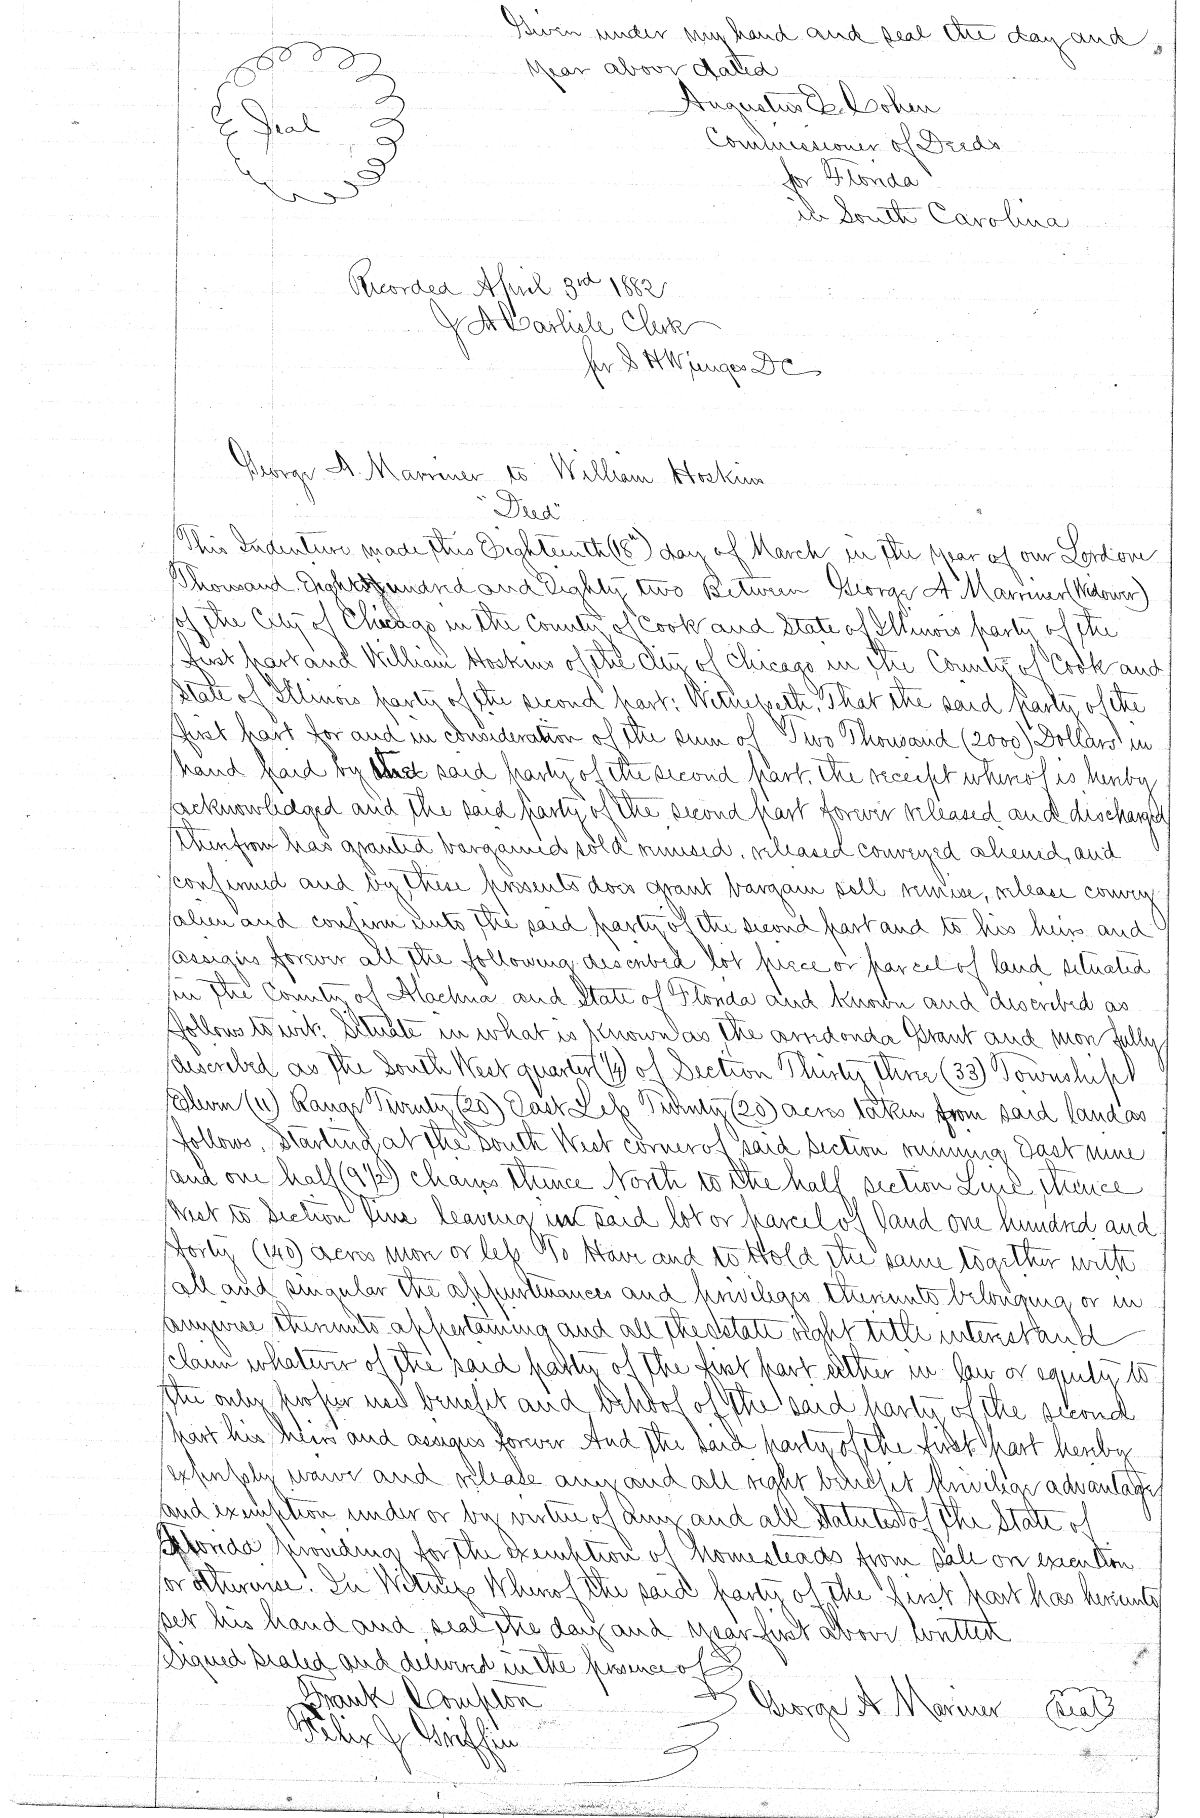 Given under my hand and seal the day and
year above dated
Seal
Augustus E Cohen
Commissioner of Deeds
for Florida
in South Carolina
Recorded April 3rd 1882
J A Carlisle Clerk
per S H Wienges DC
George A. Marriner to William Hoskins
"Deed"
This Indenture made this Eighteenth (18th) day of March in the year of our Lord one
Thousand Eight Hundred and Eighty two Between George A Marriner (Widower)
of the City of Chicago in the County of Cook and State of Illinois party of the
first part and William Hoskins of the City of Chicago in the County of Cook and
State of Illinois party of the second part: Witnesseth, That the said party of the
first part for and in consideration of the sum of Two Thousand (2000) Dollars in
hand paid by the said party of the second part, the receipt whereof is hereby
acknowledged and the said party of the second part forever released and discharged
therefrom has granted bargained sold remised, released conveyed aliened, and
confirmed and by these presents does grant bargain sell remise, release convey
alien and confirm unto the said party of the second part and to his heirs and
assigns forever all the following described lot piece or parcel of land situated
in the County of Alachua and State of Florida and known and described as
follows to wit: Situate in what is known as the arredonda Grant and more fully
described as the South West quarter (1/4) of Section Thirty three (33) Township
Eleven (11) Range Twenty (20) East Less Twenty (20) acres taken from said land as
follows, starting at the South West corner of said section running East nine
and one half (9 1/2) chains thence North to the half section Line thence
West to Section line leaving in said lot or parcel of land one hundred and
forty (140) acres more or less To Have and to Hold the same together with
all and singular the appurtenances and privileges thereunto belonging or in
anywise thereunto appertaining and all the estate right title interest and
claim whatever of the said party of the first part either in law or equity to
the only proper use benefit and behoof of the said party of the second
part his heirs and assigns forever And the said party of the first part hereby
expressly waive and release any and all right benefit privilege advantage
and exemption under or by virtue of any and all Statutes of the State of
Florida providing for the exemption of homesteads from sale on execution
or otherwise. In Witness Whereof the said party of the first part has hereunto
set his hand and seal the day and year first above written
Signed sealed and delivered in the presence of
Frank Compton
George A Mariner Seal
Felix J Griffin